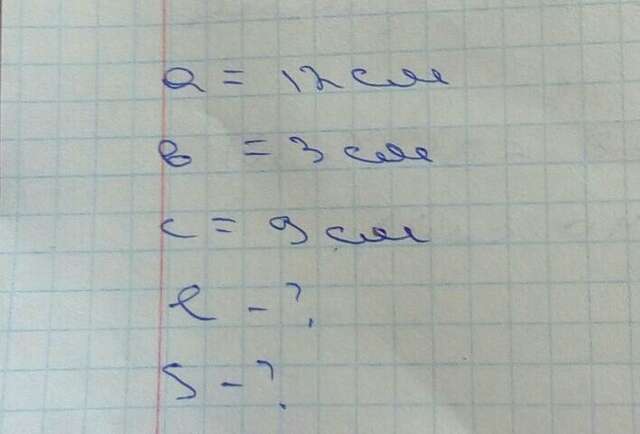 a = 12 см
в = 3 см
c = 9 см
l - ?
S - ?